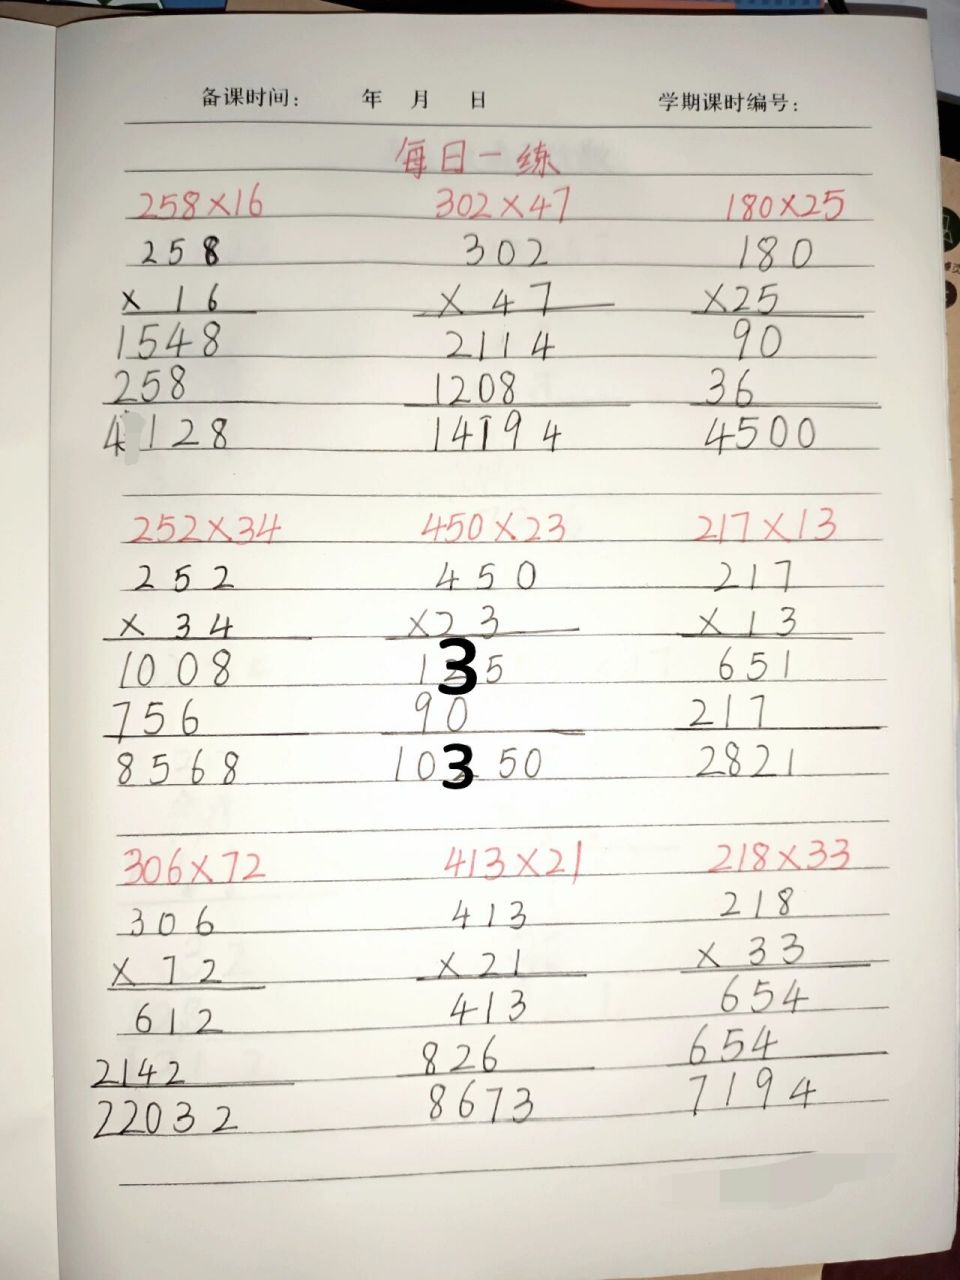 备课时间： 年 月 日 学期课时编号：
每日一练
258×16 302×47 180×25
258 302 180
× 16 × 47 ×25
1548 2114 90
258 1208 36
4128 14194 4500
252×34 450×23 217×13
252 450 217
× 34 ×23 × 13
1008 135 651
756 90 217
8568 10350 2821
306×72 413×21 218×33
306 413 218
× 72 × 21 × 33
612 413 654
2142 826 654
22032 8673 7194